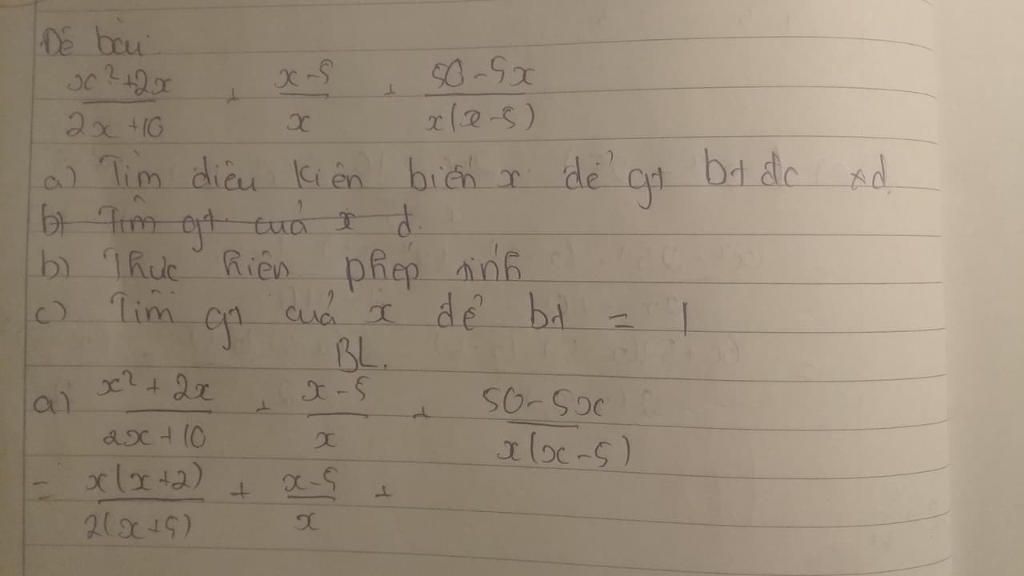 Đề bài:
x²+2x / 2x+10 + x-5 / x + 50-5x / x(x-5)
a) Tìm điều kiện biến x để gt bt đc xđ.
b) Tìm gt của x đ.
b) Thực hiện phép tính
c) Tìm gt của x để bt = 1
BL.
a) x²+2x / 2x+10 + x-5 / x + 50-5x / x(x-5)
= x(x+2) / 2(x+5) + x-5 / x +